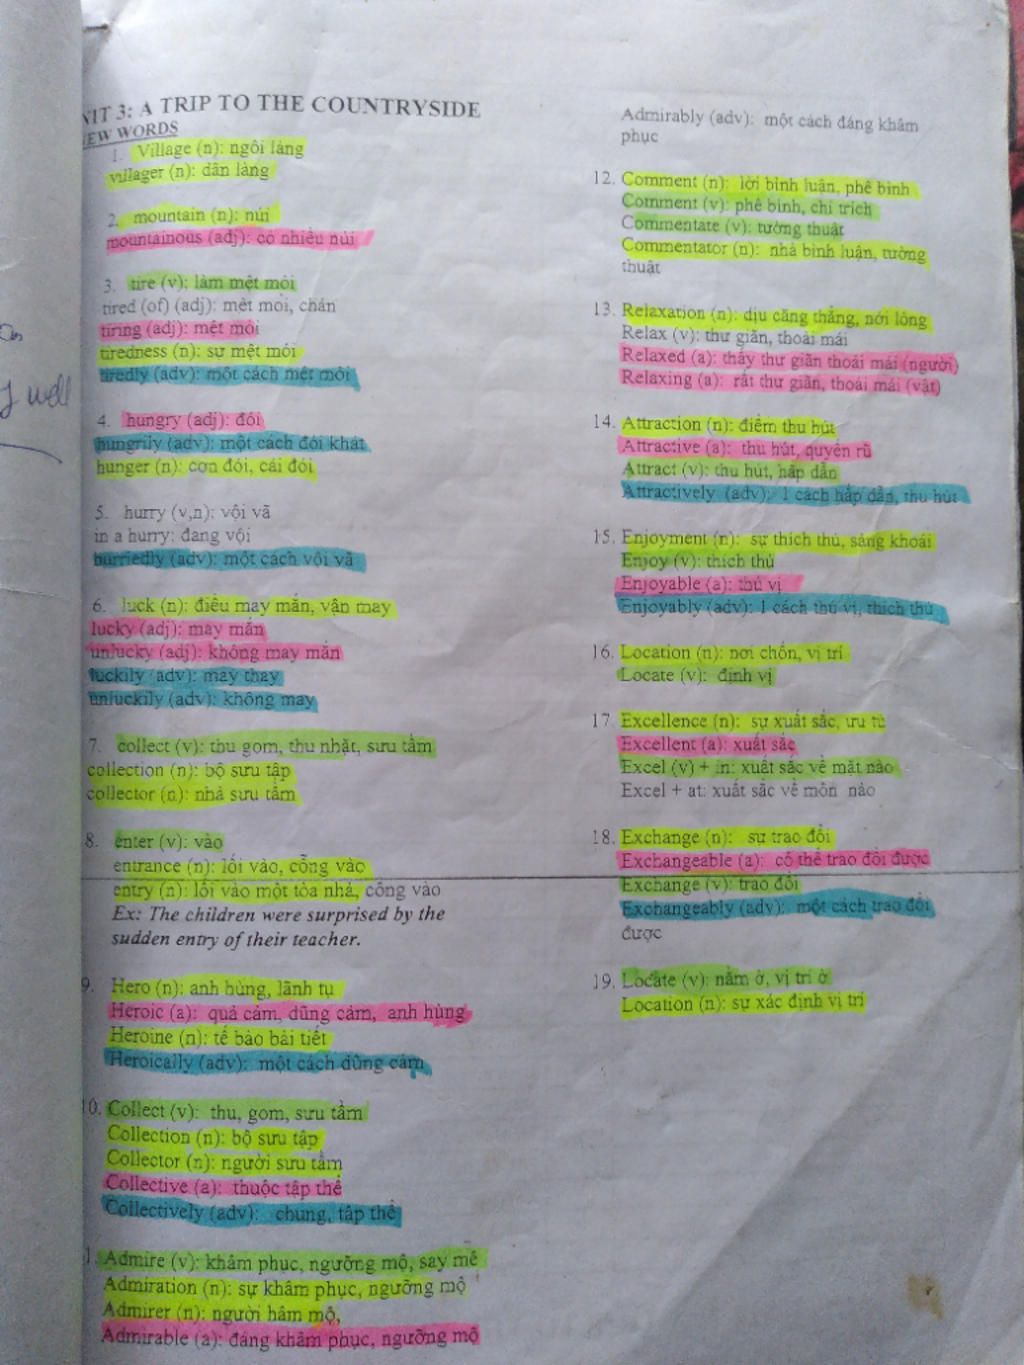 NIT 3: A TRIP TO THE COUNTRYSIDE
EW WORDS
1. Village (n): ngôi làng
villager (n): dân làng
2. mountain (n): núi
mountainous (adj): có nhiều núi
3. tire (v): làm mệt mỏi
tired (of) (adj): mệt mỏi, chán
tiring (adj): mệt mỏi
tiredness (n): sự mệt mỏi
tiredly (adv): một cách mệt mỏi
4. hungry (adj): đói
hungrily (adv): một cách đói khát
hunger (n): cơn đói, cái đói
5. hurry (v,n): vội vã
in a hurry: đang vội
hurriedly (adv): một cách vội vã
6. luck (n): điều may mắn, vận may
lucky (adj): may mắn
unlucky (adj): không may mắn
luckily (adv): may thay
unluckily (adv): không may
7. collect (v): thu gom, thu nhặt, sưu tầm
collection (n): bộ sưu tập
collector (n): nhà sưu tầm
8. enter (v): vào
entrance (n): lối vào, cổng vào
entry (n): lối vào một tòa nhà, cổng vào
Ex: The children were surprised by the
sudden entry of their teacher.
9. Hero (n): anh hùng, lãnh tụ
Heroic (a): quả cảm, dũng cảm, anh hùng
Heroine (n): tế bào bài tiết
Heroically (adv): một cách dũng cảm
10. Collect (v): thu, gom, sưu tầm
Collection (n): bộ sưu tập
Collector (n): người sưu tầm
Collective (a): thuộc tập thể
Collectively (adv): chung, tập thể
1. Admire (v): khâm phục, ngưỡng mộ, say mê
Admiration (n): sự khâm phục, ngưỡng mộ
Admirer (n): người hâm mộ,
Admirable (a): đáng khâm phục, ngưỡng mộ
Admirably (adv): một cách đáng khâm
phục
12. Comment (n): lời bình luận, phê bình
Comment (v): phê bình, chỉ trích
Commentate (v): tường thuật
Commentator (n): nhà bình luận, tường
thuật
13. Relaxation (n): dịu căng thẳng, nới lỏng
Relax (v): thư giãn, thoải mái
Relaxed (a): thấy thư giãn thoải mái (người)
Relaxing (a): rất thư giãn, thoải mái (vật)
14. Attraction (n): điểm thu hút
Attractive (a): thu hút, quyến rũ
Attract (v): thu hút, hấp dẫn
Attractively (adv): 1 cách hấp dẫn, thu hút
15. Enjoyment (n): sự thích thú, sảng khoái
Enjoy (v): thích thú
Enjoyable (a): thú vị
Enjoyably (adv): 1 cách thú vị, thích thú
16. Location (n): nơi chốn, vị trí
Locate (v): định vị
17. Excellence (n): sự xuất sắc, ưu tú
Excellent (a): xuất sắc
Excel (v) + in: xuất sắc về mặt nào
Excel + at: xuất sắc về môn nào
18. Exchange (n): sự trao đổi
Exchangeable (a): có thể trao đổi được
Exchange (v): trao đổi
Exchangeably (adv): một cách trao đổi
được
19. Locate (v): nằm ở, vị trí ở
Location (n): sự xác định vị trí
well